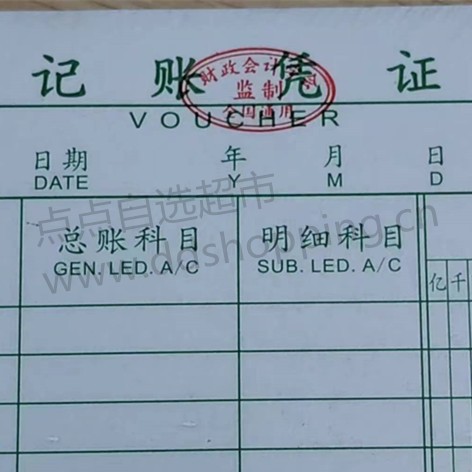 记 账 凭 证
财政会计
监制
全国通用
VOUCHER
日期 年 月 日
DATE Y M D
点点自选超市
www.ddshopping.cn
总账科目 明细科目
GEN. LED. A/C SUB. LED. A/C
亿 千